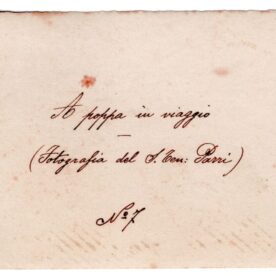 A poppa in viaggio
(Fotografia del S. Ten: Parri)
No 7